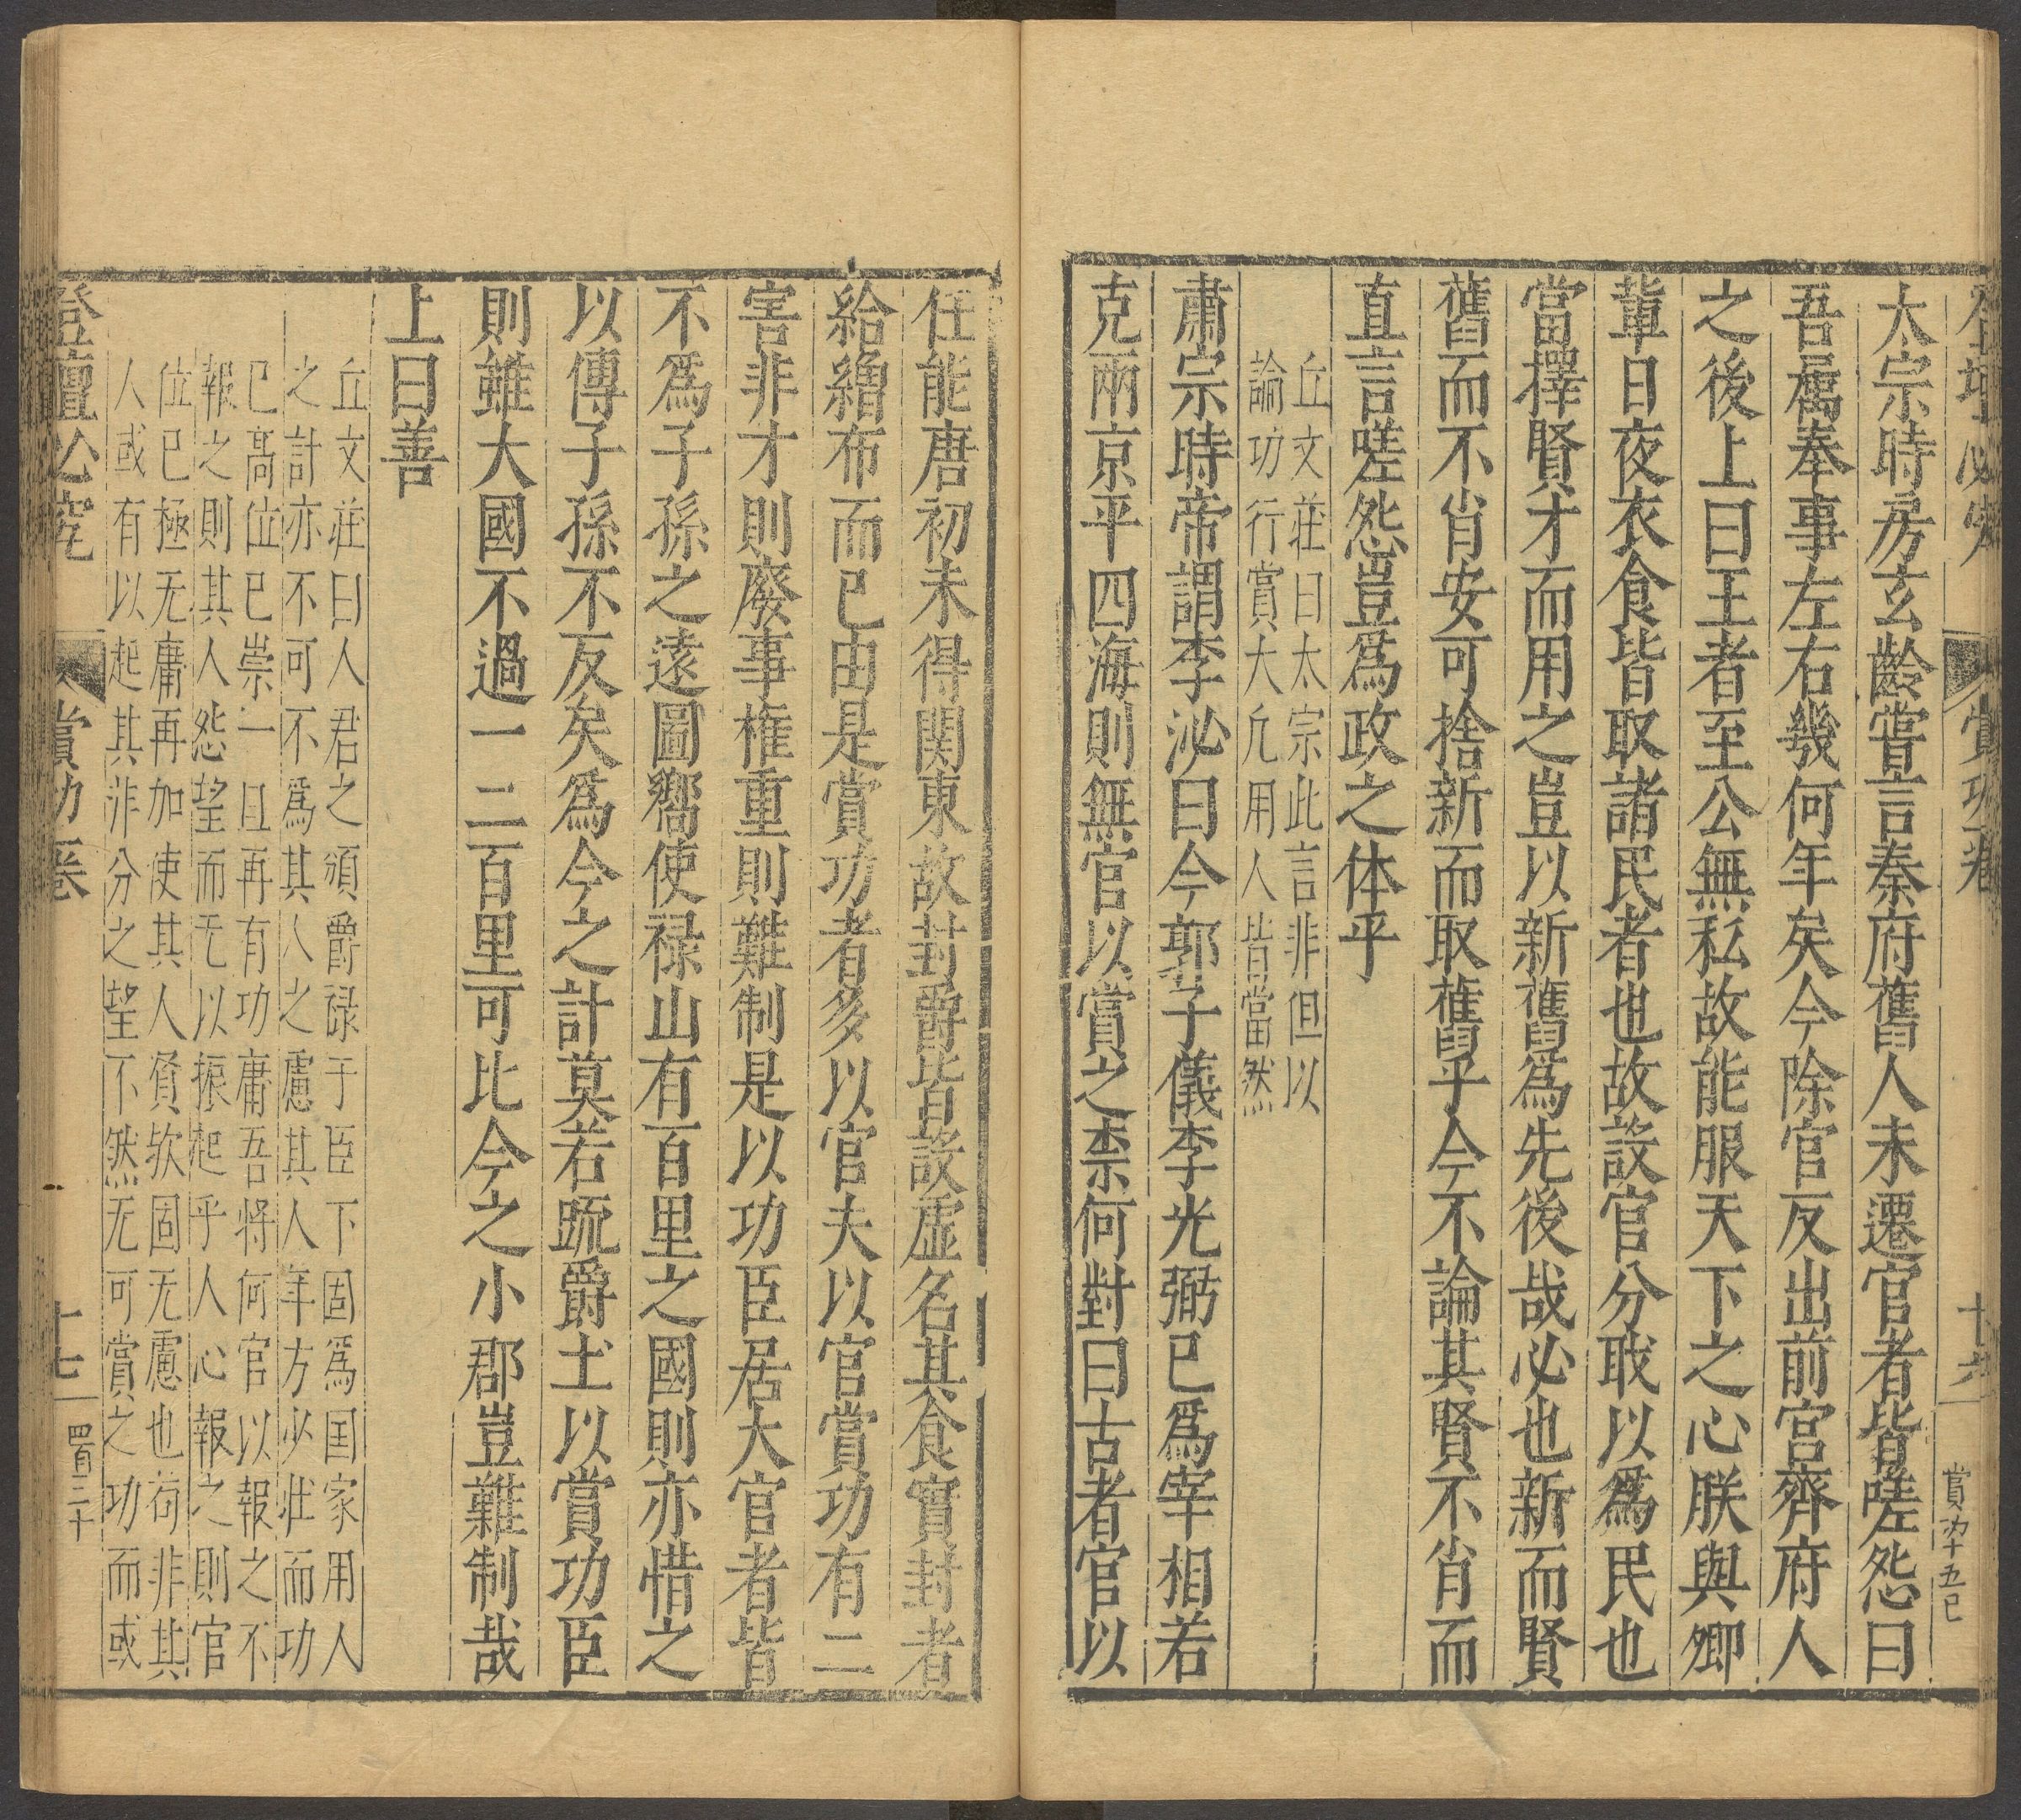 登壇必究
賞功一卷
十六
賞功十五已
太宗時房玄齡嘗言秦府舊人未遷官者皆嗟怨曰
吾属奉事左右幾何年矣今除官反出前宫齊府人
之後上曰王者至公無私故能服天下之心朕與卿
軰日夜衣食皆取諸民者也故設官分䏁以爲民也
當擇賢才而用之豈以新舊爲先後哉必也新而賢
舊而不肖安可捨新而取舊乎今不論其賢不肖而
直言嗟怨豈爲政之体乎
丘文莊曰太宗此言非但以
論功行賞大凢用人皆當然
肅宗時帝謂李泌曰今郭子儀李光弼已爲宰相若
克兩京平四海則無官以賞之柰何對曰古者官以
任能唐初未得関東故封爵皆設虚名其食實封者
給繒布而已由是賞功者多以官夫以官賞功有二
害非才則廢事權重則難制是以功臣居大官者皆
不爲子孫之遠圖嚮使禄山有百里之國則亦惜之
以傳子孫不反矣爲今之計莫若疏爵土以賞功臣
則雖大國不過一二百里可比今之小郡豈難制哉
上曰善
丘文莊曰人君之頒爵禄于臣下固爲国家用人
之計亦不可不爲其人之慮其人年方少壮而功
已髙位已崇一旦再有功庸吾将何官以報之不
報之則其人怨望而无以振起乎人心報之則官
位已極无庸再加使其人貧欤固无慮也苟非其
人或有以起其非分之望不然无可賞之功而或
登壇必究
賞功一卷
十七
四百三十